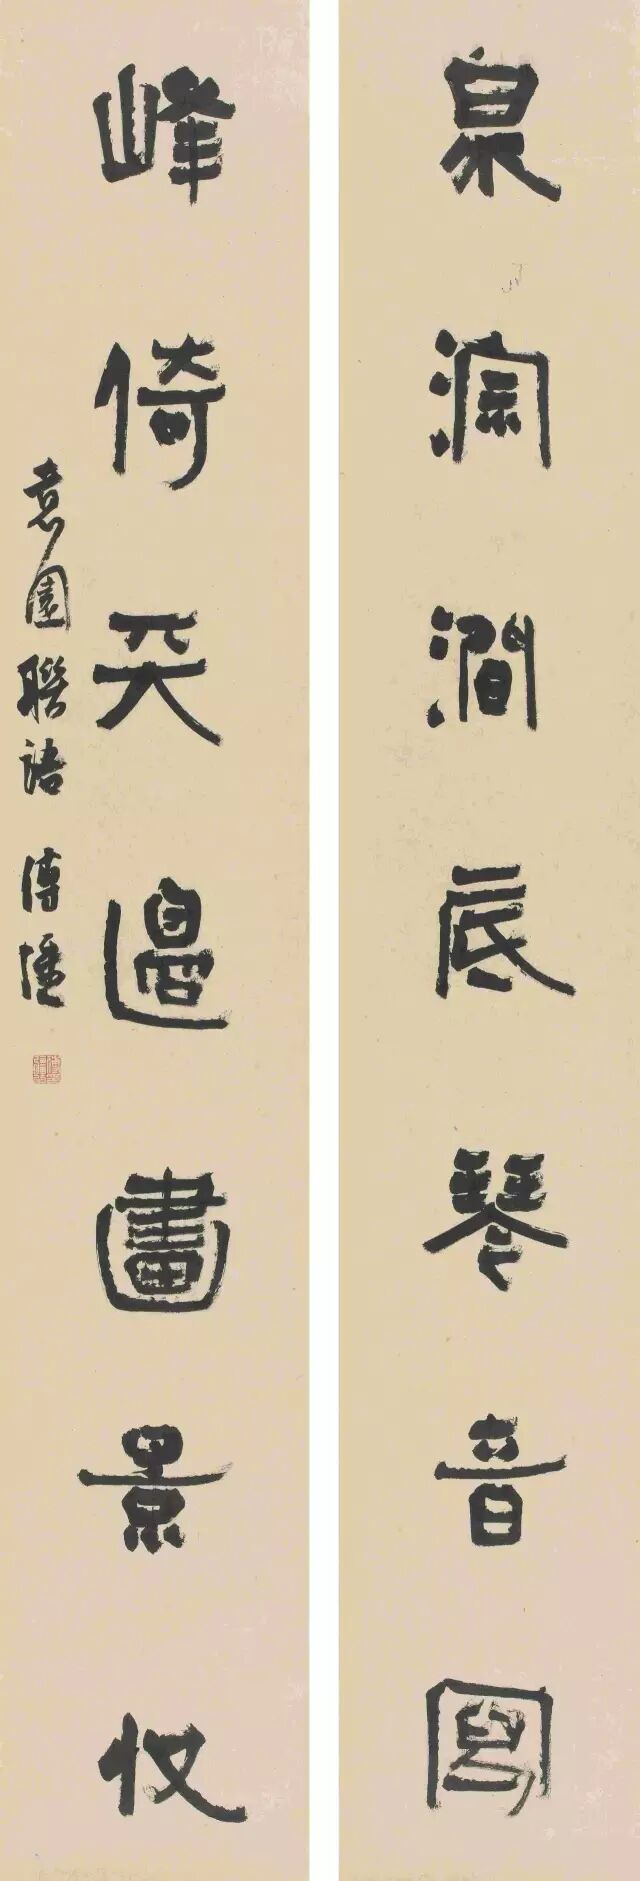 泉淙澗底琴音寫
峰倚天邊畫景收
意園聯語